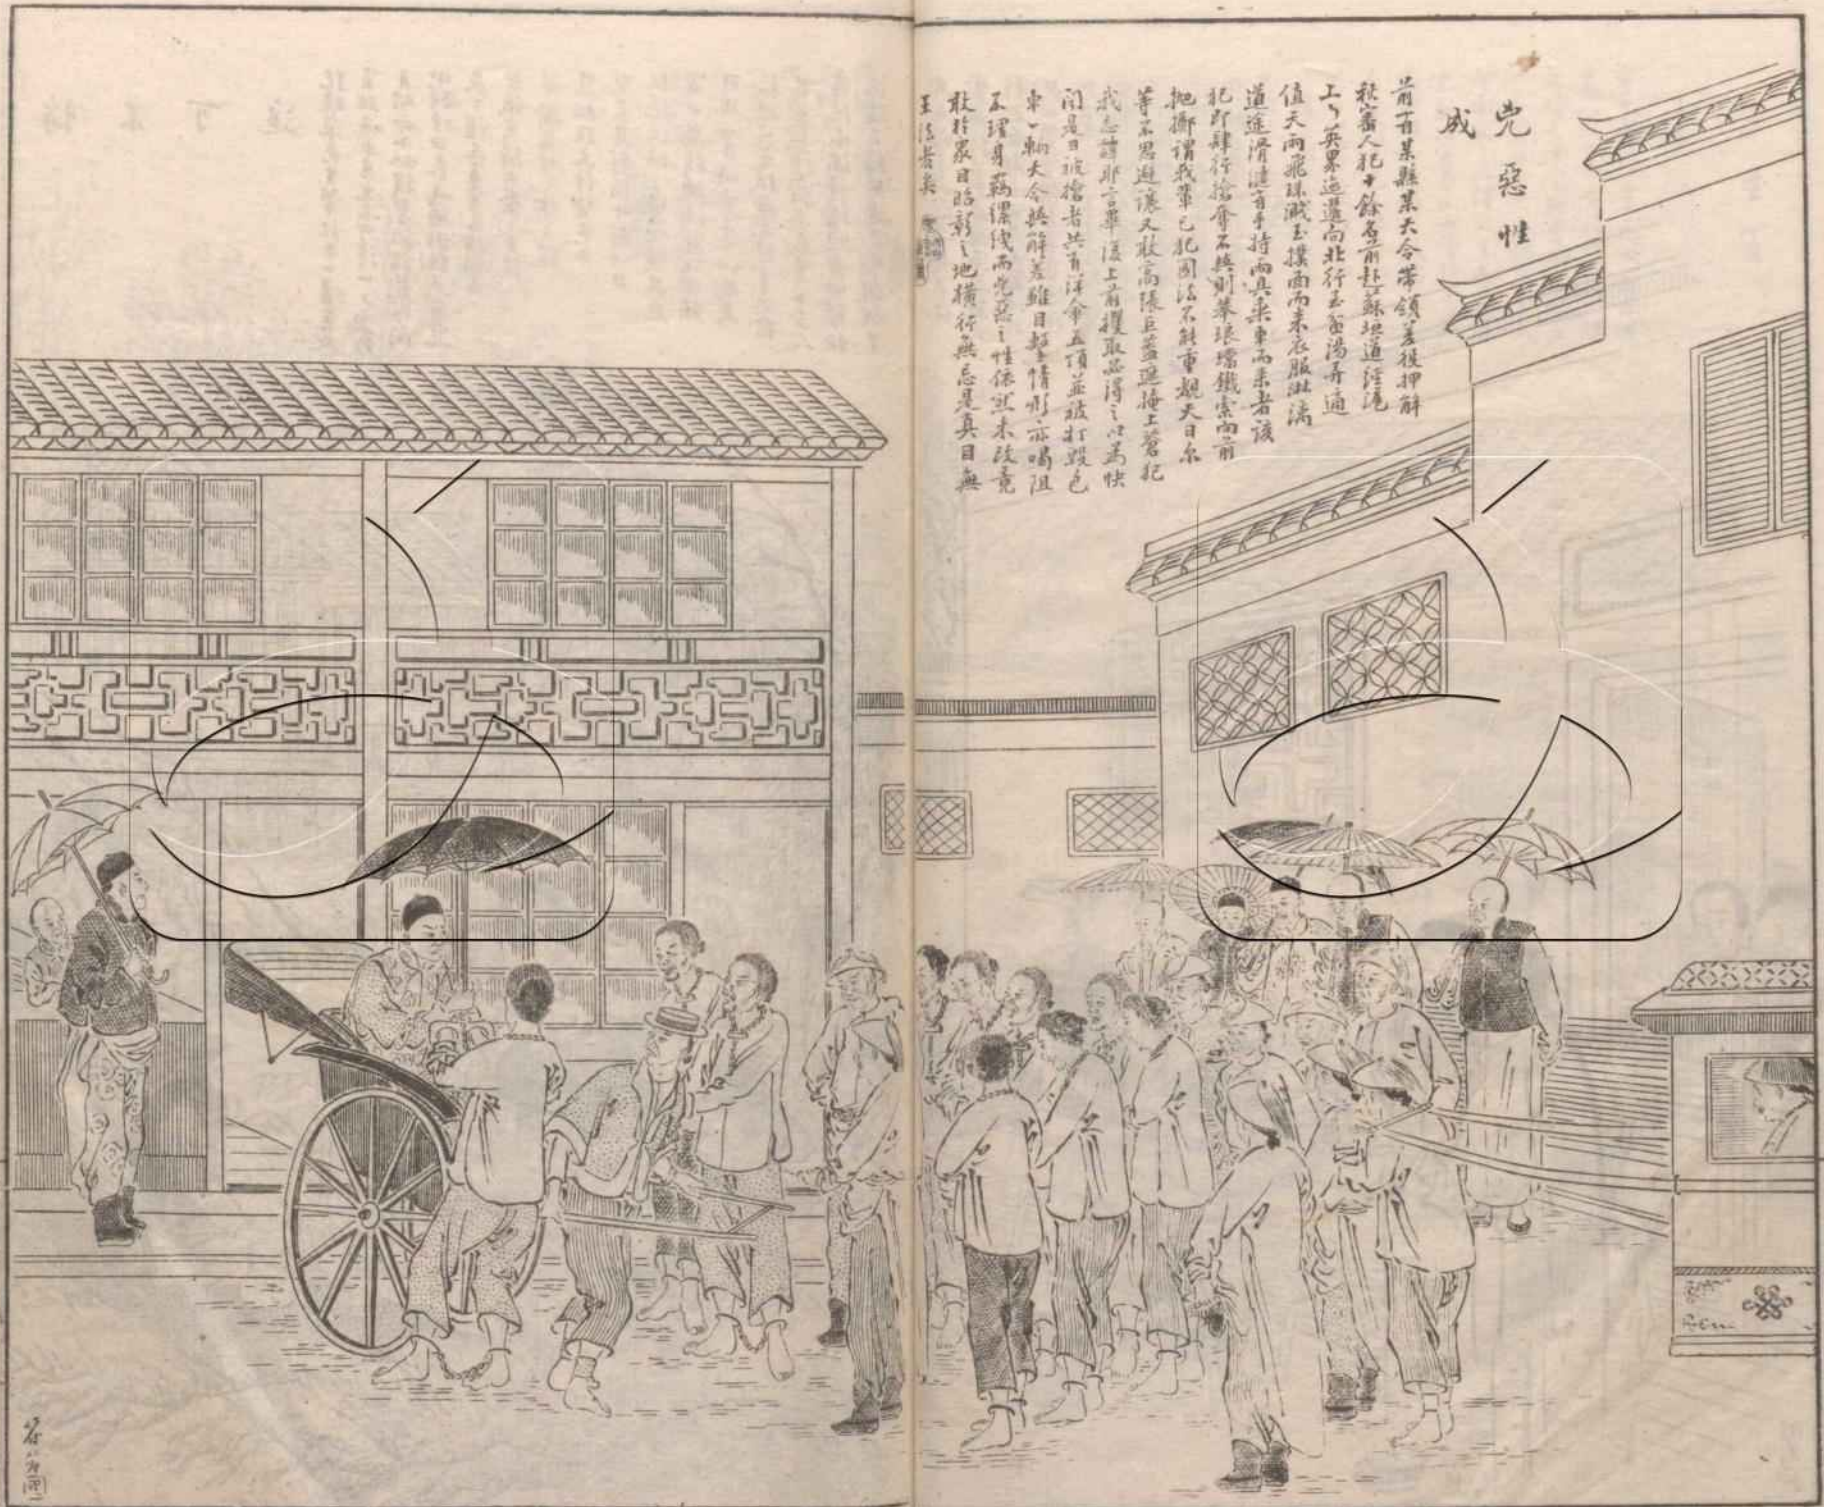 兇惡性
成
前有某縣某大令帶領差役押解
秋審人犯十餘名前赴蘇垣道經滬
上之英界迤邐向北行至盆湯弄適
值天雨飛珠濺玉撲面而來衣服淋漓
道途滑澾有手持雨具乘車而來者該
犯即肆行搶奪不與則舉琅璫鐵索向前
拋擲謂我輩已犯國法不能重覩天日尔
等不思避讓又敢高張巨蓋遮掩上蒼犯
我忌諱耶言畢復上前攫取必得之以為快
聞是日被搶者共有洋傘五頂並被打毀包
車一輛大令與解差雖目擊情形亦喝阻
不理身羈縲絏而兇惡之性依然未改竟
敢於眾目昭彰之地橫行無忌是真目無
王法者矣